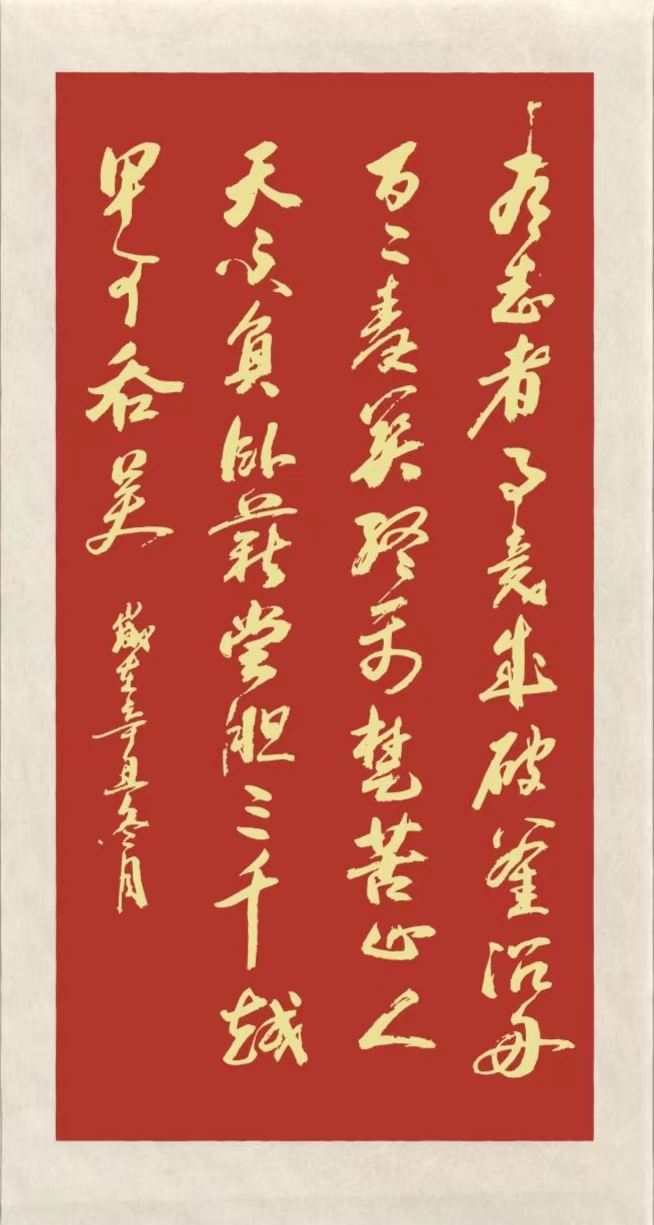 有志者事竟成破釜沉舟
百二秦關終屬楚苦心人
天不負卧薪嘗胆三千越
甲可吞吴
歲在辛丑冬月